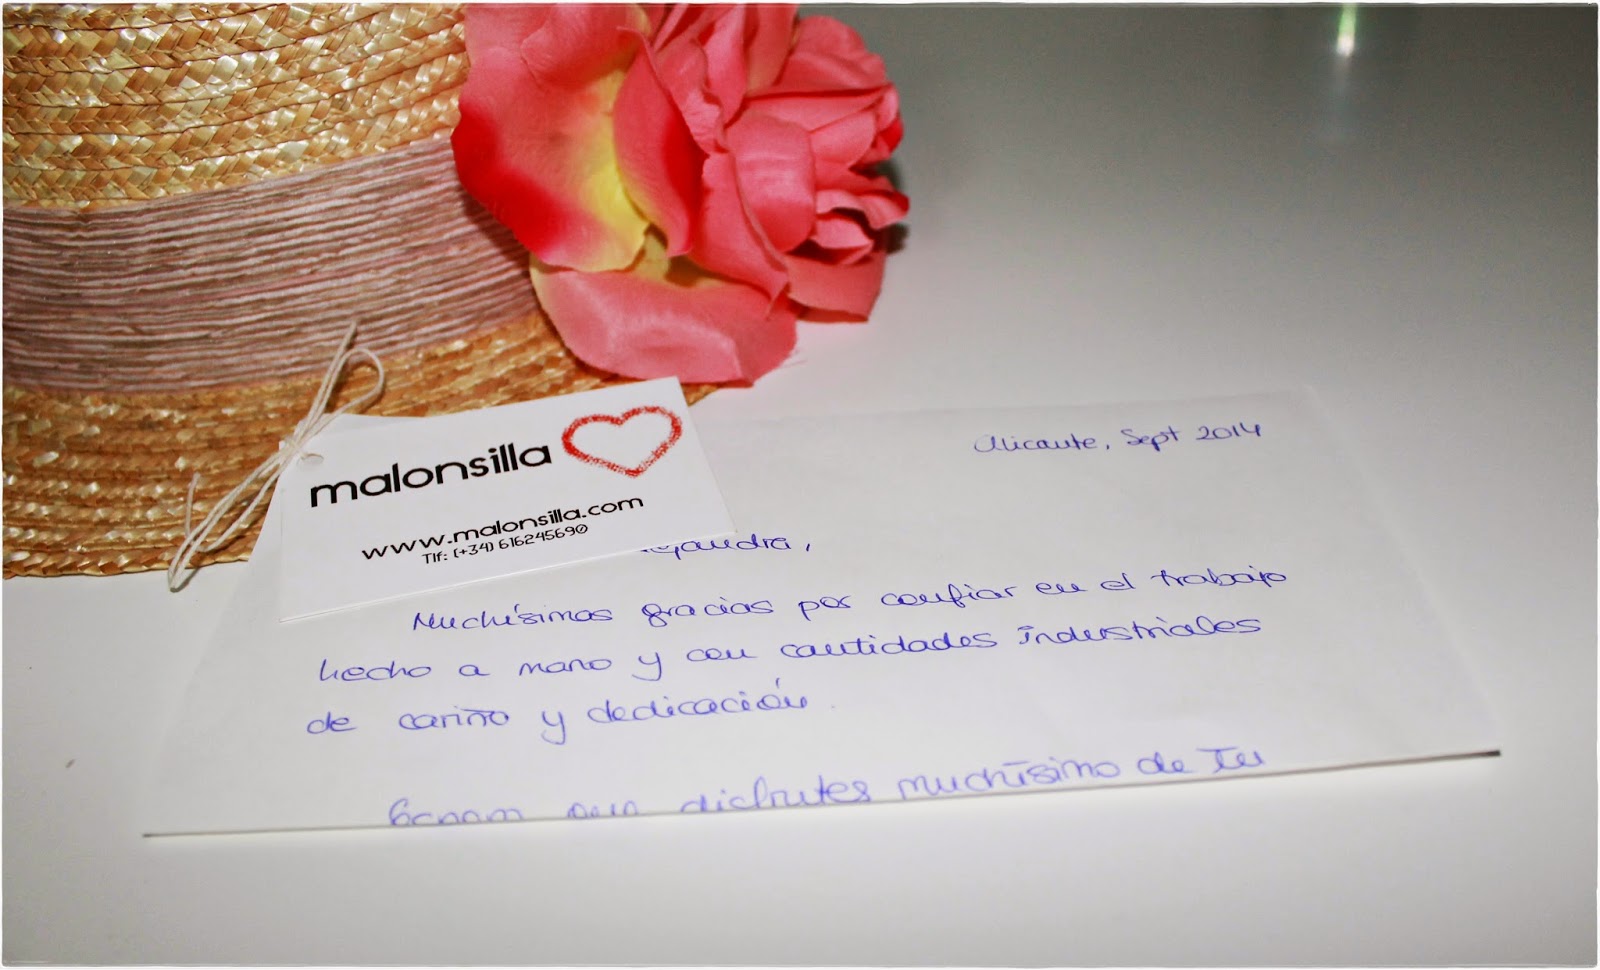 malonsilla
www.malonsilla.com
Tlf: (+34) 616245690
Alicante, Sept 2014
Muchísimas gracias por confiar en el trabajo
hecho a mano y con cantidades industriales
de cariño y dedicación.
que disfrutes muchísimo de tu